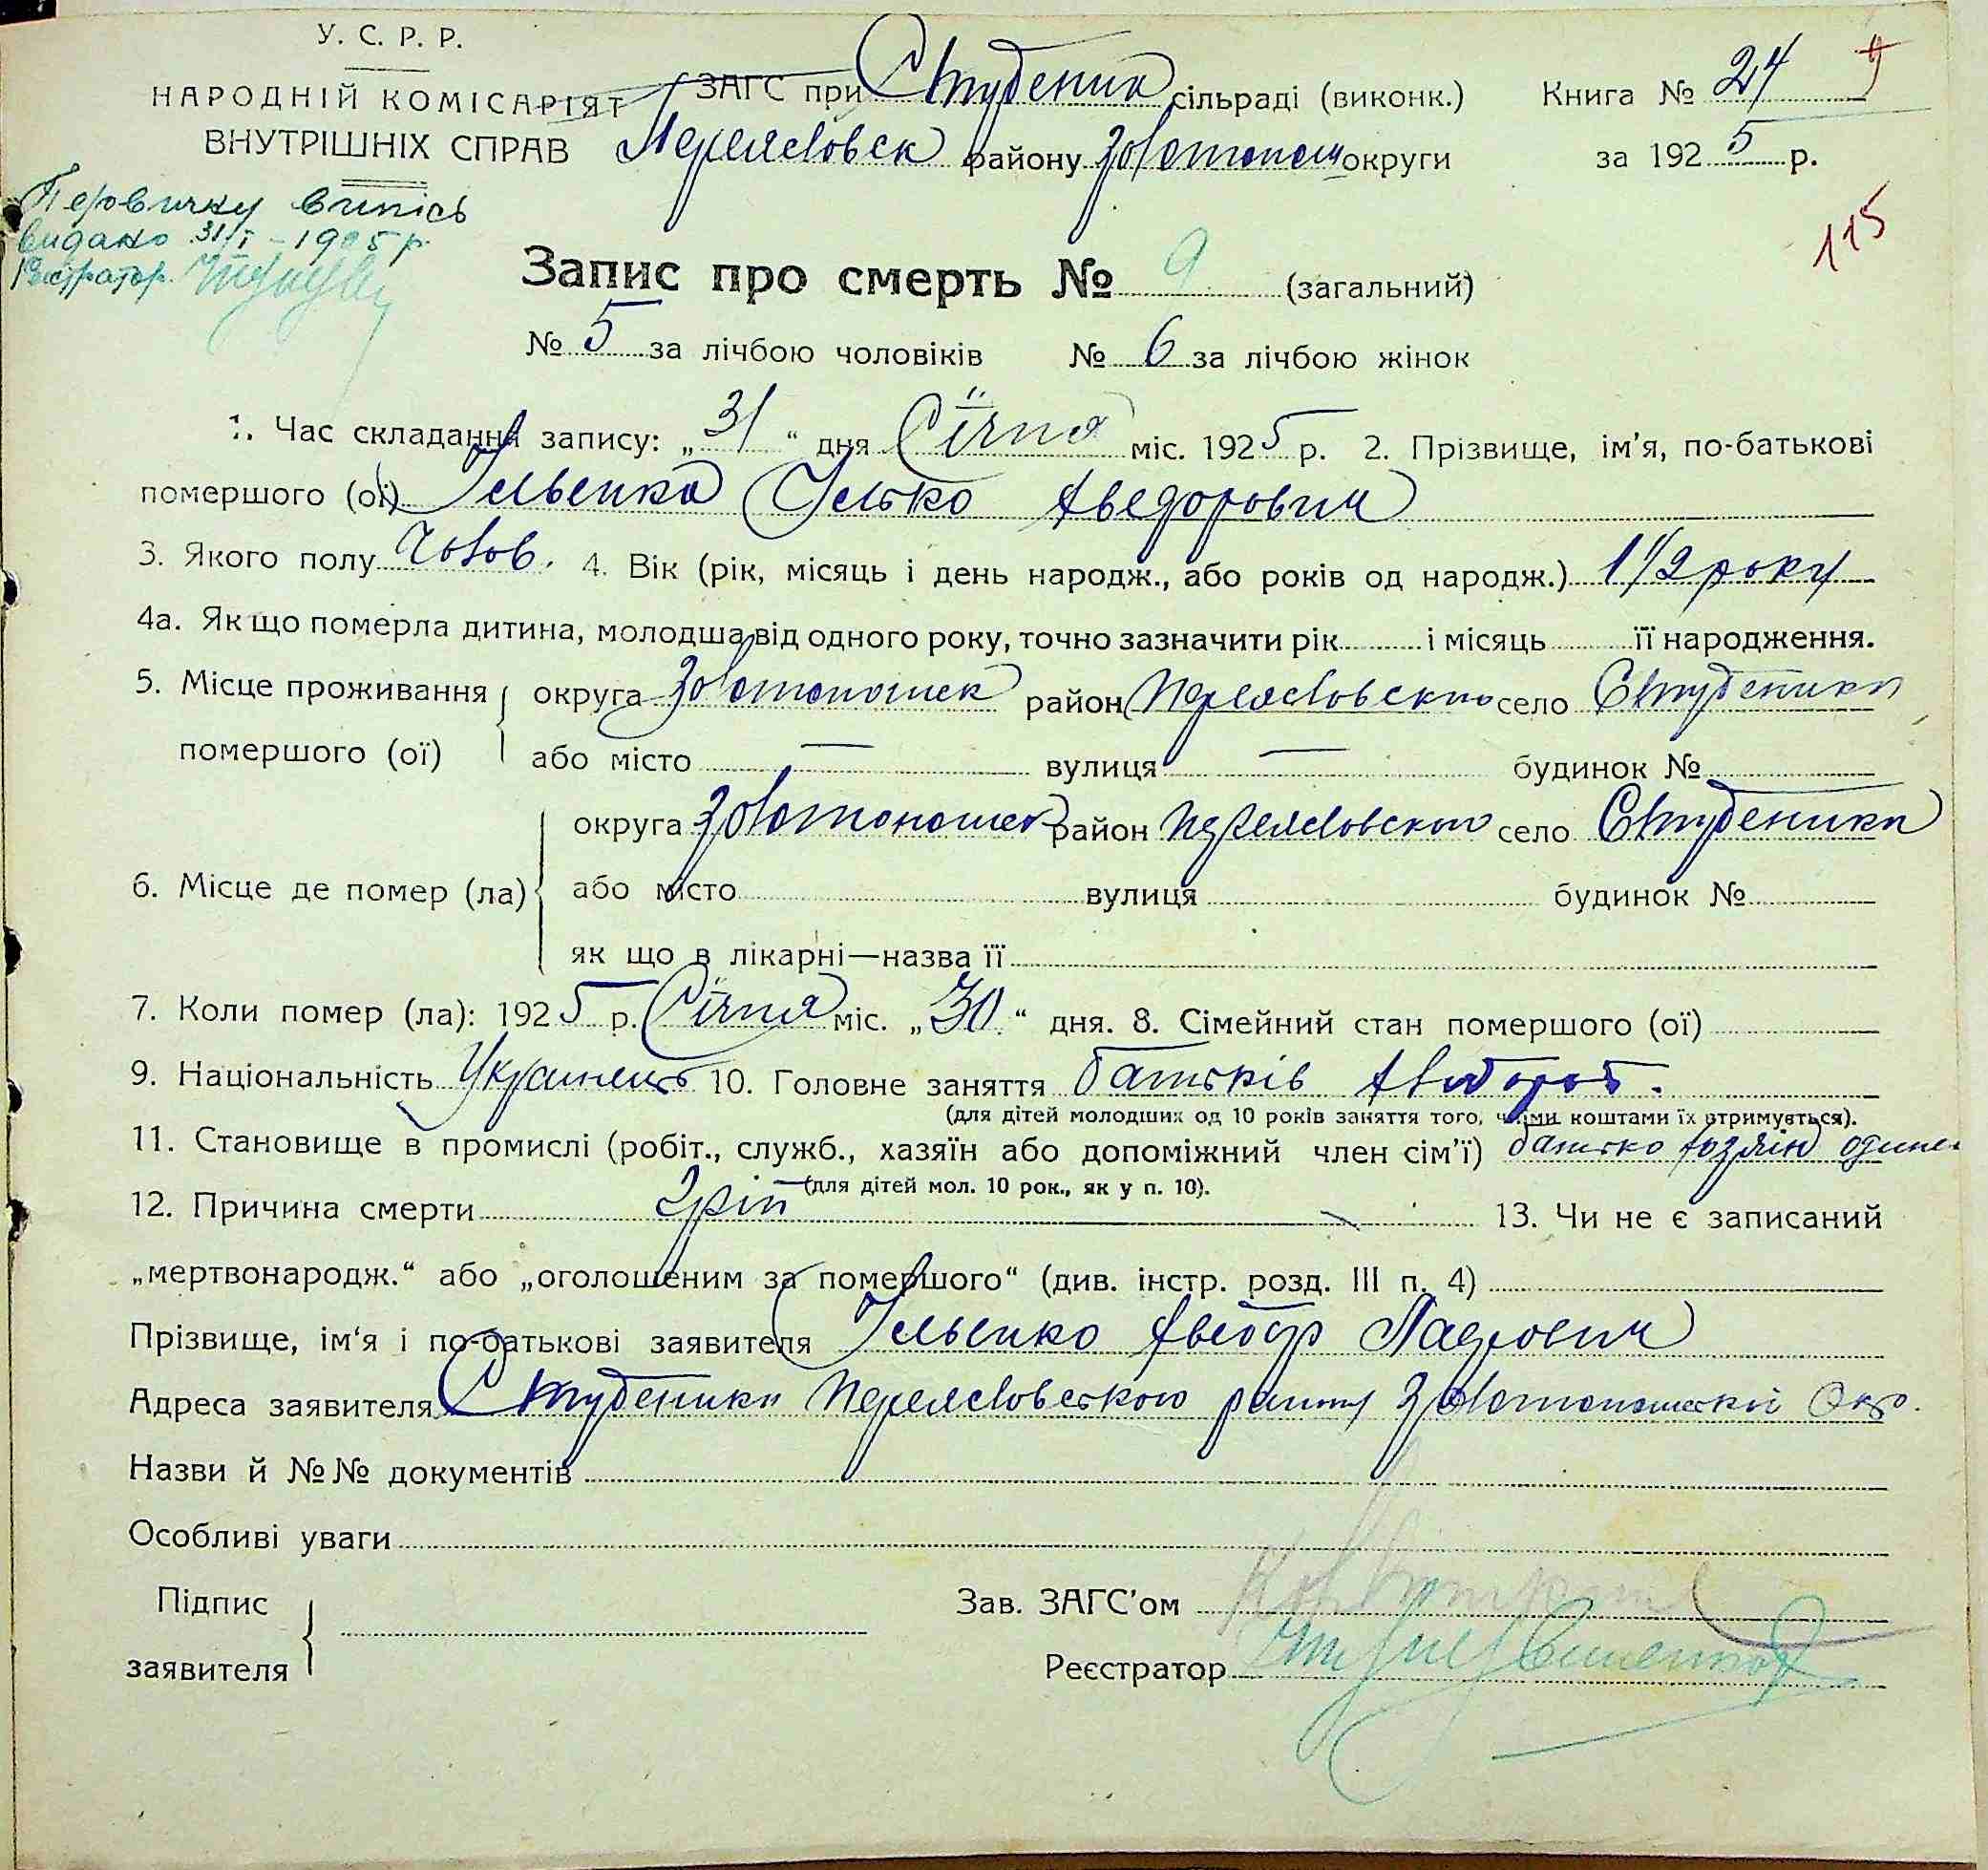 У. С. Р. Р.
НАРОДНІЙ КОМІСАРІЯТ
ВНУТРІШНІХ СПРАВ
ЗАГС при Студеник сільраді (виконк.)
Переясловск району Золотонош округи
Книга № 24 9
за 1925 р.
115
Первичну випісь
видано 31/I - 1925 р.
Регістратор
Запис про смерть № 9 (загальний)
№ 5 за лічбою чоловіків № 6 за лічбою жінок
1. Час складання запису: „31“ дня Січня міс. 1925 р. 2. Прізвище, ім'я, по-батькові
помершого (ої) Ільєнко Ілько Аведорович
3. Якого полу Чолов. 4. Вік (рік, місяць і день народж., або років од народж.) 1 1/2 року
4а. Як що померла дитина, молодша від одного року, точно зазначити рік і місяць її народження.
5. Місце проживання помершого (ої) округа Золотоношск район Переясловского село Студеники
або місто — вулиця — будинок №
6. Місце де помер (ла) округа Золотоношск район Переясловского село Студеники
або місто вулиця будинок №
як що в лікарні—назва її
7. Коли помер (ла): 1925 р. Січня міс. „30“ дня. 8. Сімейний стан помершого (ої)
9. Національність Українець 10. Головне заняття батьків хлібороб.
(для дітей молодших од 10 років заняття того, чиїми коштами їх втримується).
11. Становище в промислі (робіт., служб., хазяїн або допоміжний член сім'ї) батько хозяін
(для дітей мол. 10 рок., як у п. 10).
12. Причина смерти Гріп 13. Чи не є записаний
„мертвонародж.“ або „оголошеним за помершого“ (див. інстр. розд. III п. 4)
Прізвище, ім'я і по-батькові заявителя Ільєнко Аведор
Адреса заявителя Студеники Переясловського району Золотоношської Окр.
Назви й №№ документів
Особливі уваги
Підпис заявителя
Зав. ЗАГС'ом
Реєстратор